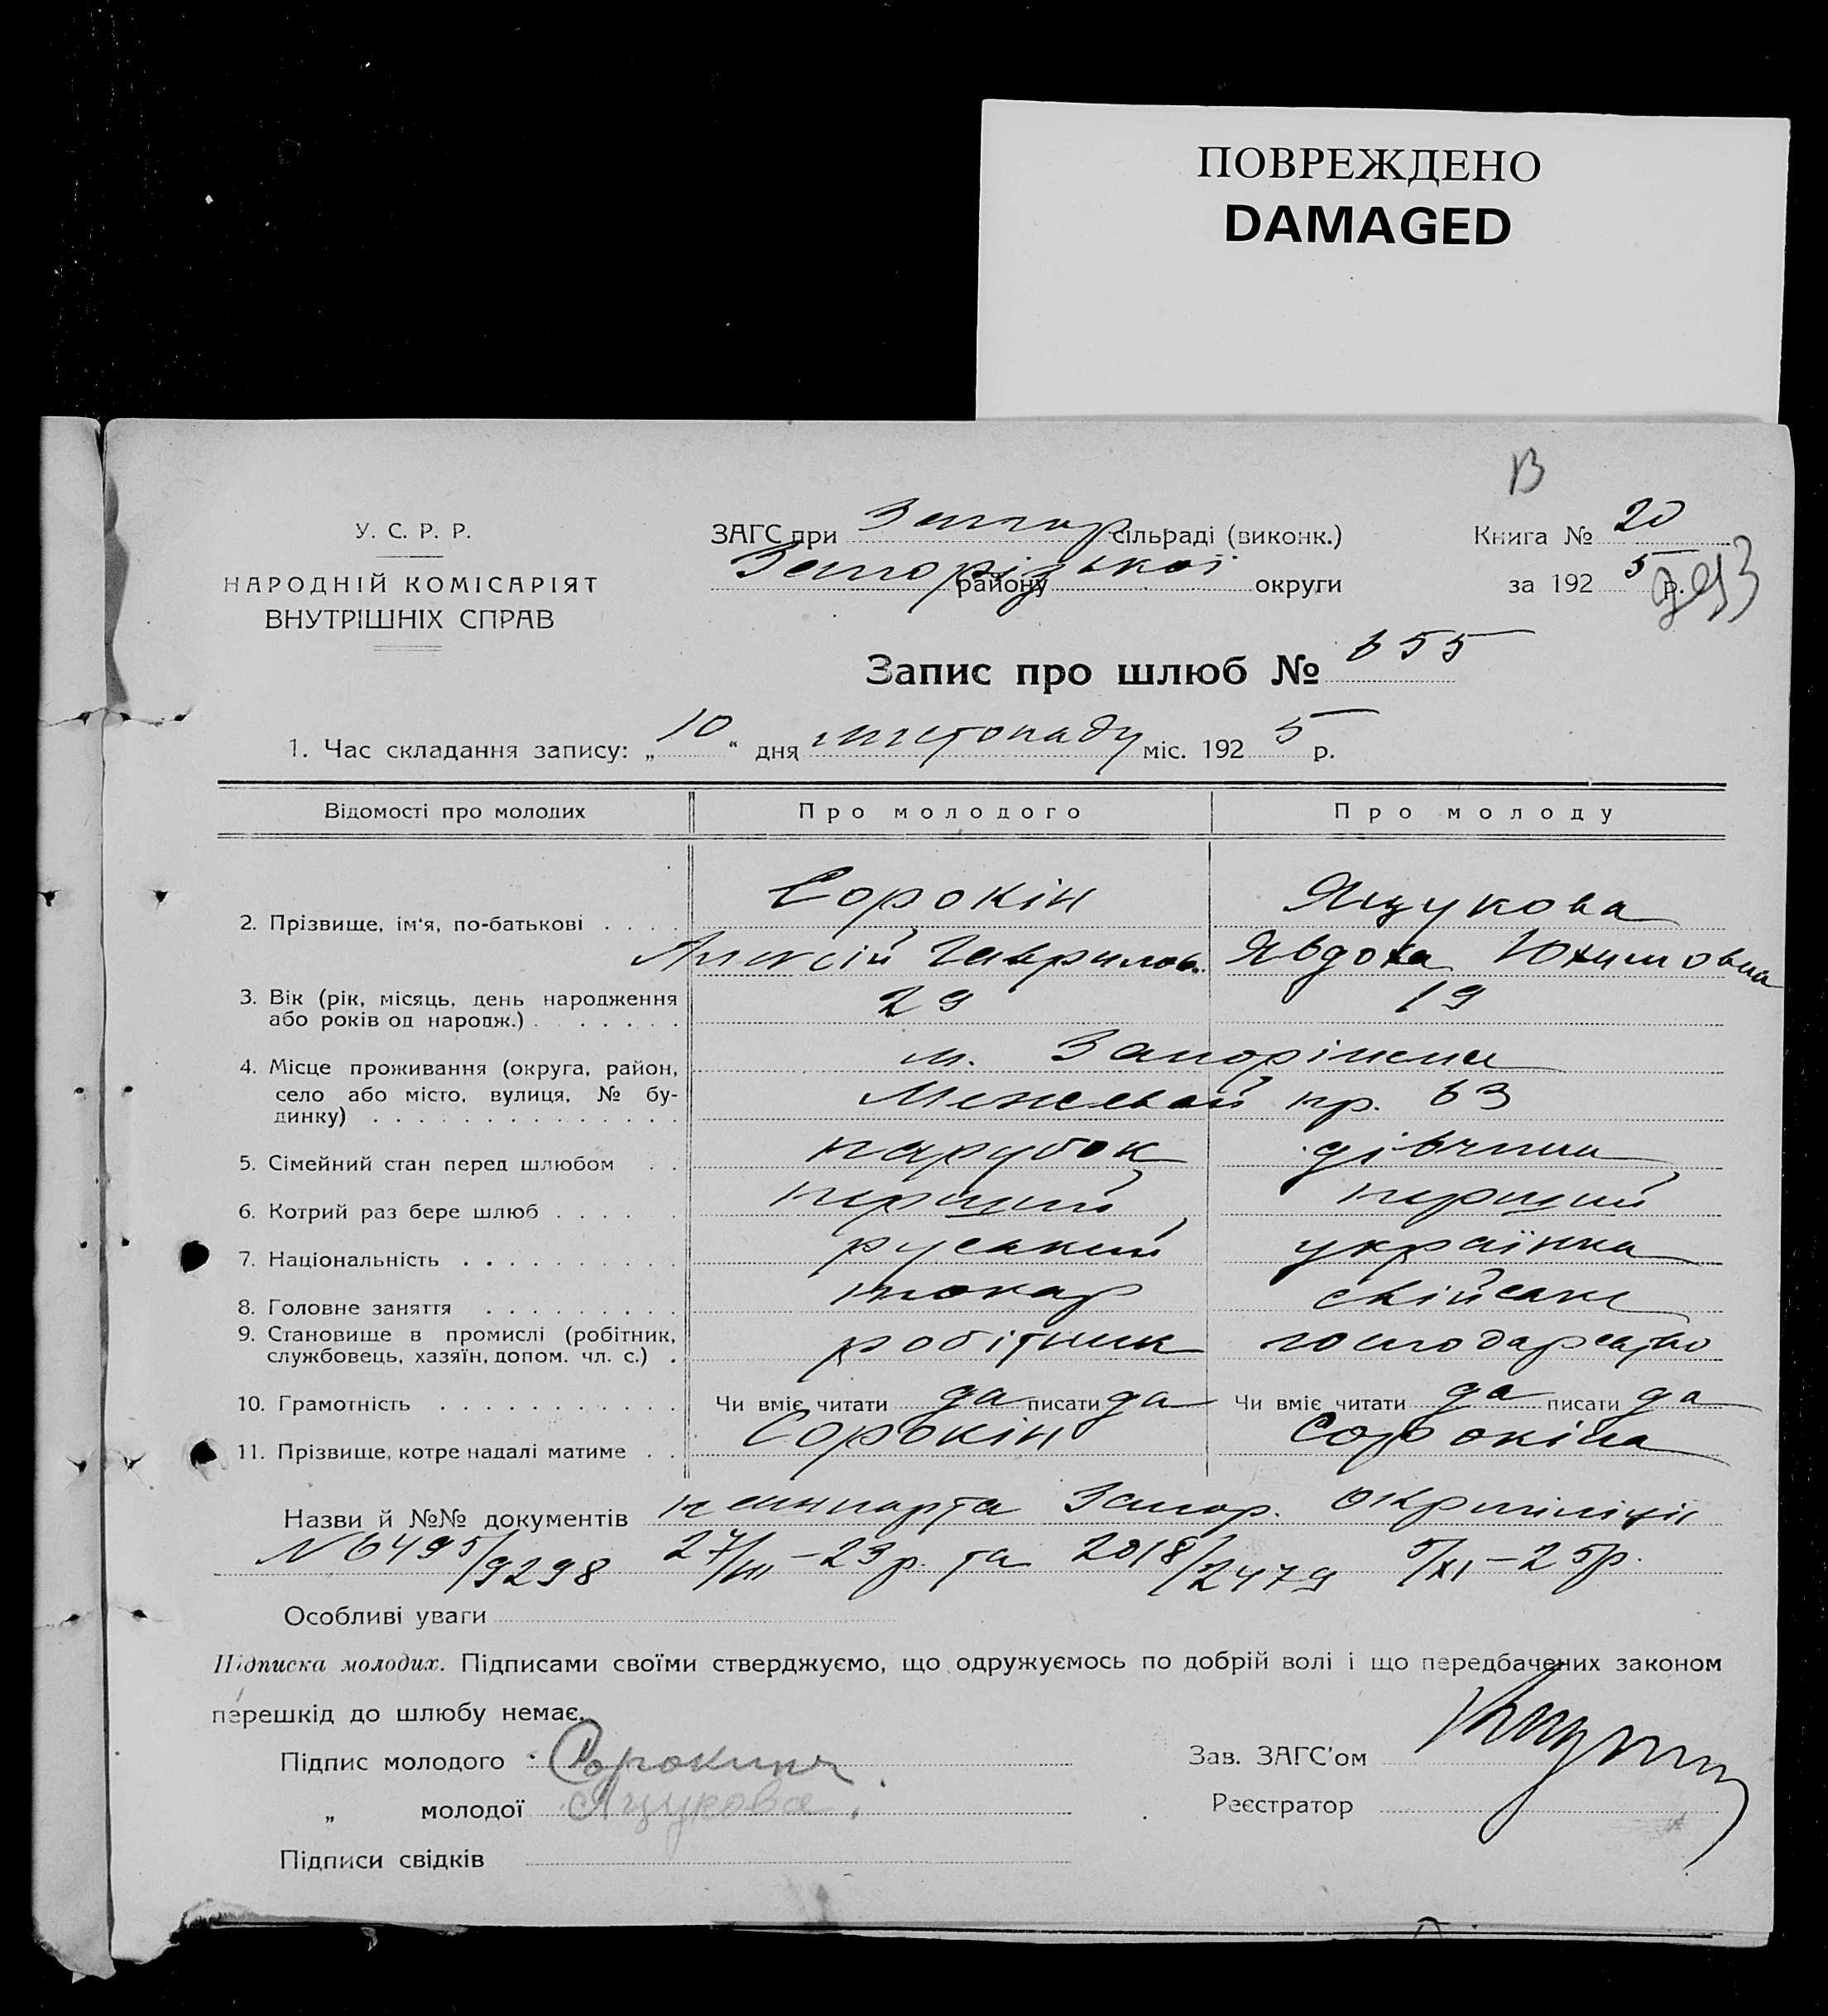 ПОВРЕЖДЕНО
DAMAGED
В
У. С. Р. Р.
НАРОДНІЙ КОМІСАРІЯТ
ВНУТРІШНІХ СПРАВ
ЗАГС при Запор сільраді (виконк.)
Запорізької району округи
Книга № 20
за 1925 р.
Запис про шлюб № 655
1. Час складання запису: „10“ дня листопаду міс. 1925 р.
Відомості про молодих Про молодого Про молоду
2. Прізвище, ім'я, по-батькові . . . . Сорокін Ящукова
Алексій Гаврилов. Явдоха Юхимовна
3. Вік (рік, місяць, день народження або років од народж.) . . . . . . . 29 19
4. Місце проживання (округа, район, м. Запоріжжя
село або місто, вулиця, № бу- Межевой пр. 63
динку) . . . . . . . . . . . . . .
5. Сімейний стан перед шлюбом . . парубок дівчина
6. Котрий раз бере шлюб . . . . . перший перший
7. Національність . . . . . . . . . . руський українка
8. Головне заняття . . . . . . . . . токар свійське
9. Становище в промислі (робітник, службовець, хазяїн, допом. чл. с.) . робітник господарство
10. Грамотність . . . . . . . . . . . Чи вміє читати да писати да Чи вміє читати да писати да
11. Прізвище, котре надалі матиме . . Сорокін Сорокіна
Назви й №№ документів пашпорта Запор. Окрміліції
N 6495/9298 27/III–23 р. та 2018/2479 5/XI–25р.
Особливі уваги
Підписка молодих. Підписами своїми стверджуємо, що одружуємось по добрій волі і що передбачених законом
перешкід до шлюбу немає.
Підпис молодого Сорокинъ
Зав. ЗАГС'ом
„ молодої Ящукова.
Реєстратор
Підписи свідків